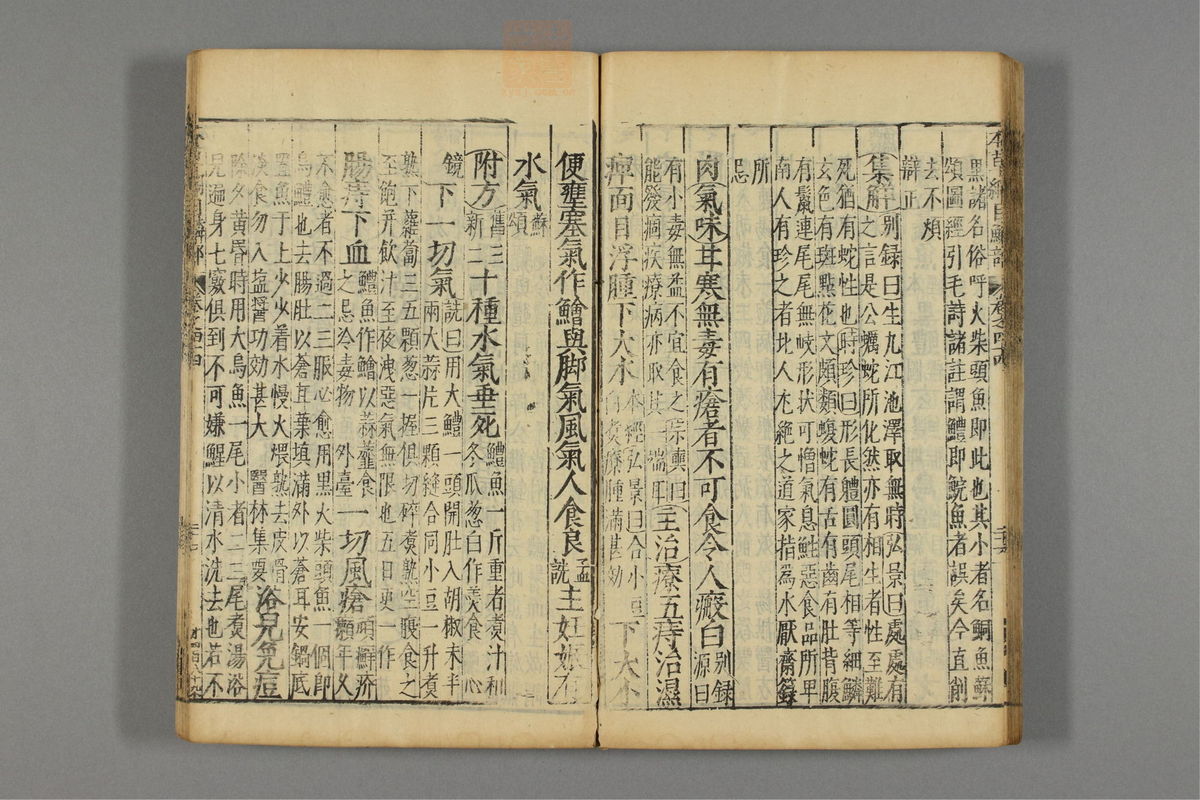 黑諸名俗呼火柴頭魚即此也其小者名鮦魚蘇
頌圖經引毛詩諸註謂鱧即鯇魚者誤矣今直削
去不煩
辯正
集解別錄曰生九江池澤取無時弘景曰處處有
之言是公蠣蛇所化然亦有相生者性至難
死猶有蛇性也時珍曰形長體圓頭尾相等細鱗
玄色有斑點花文頗類蝮蛇有舌有齒有肚背腹
有鬣連尾尾無岐形狀可憎氣息鮏惡食品所卑
南人有珍之者北人尤絕之道家指為水厭齋籙
所
忌
肉氣味甘寒無毒有瘡者不可食令人瘢白別録源曰
有小毒無益不宜食之宗奭曰
能發痼疾療病亦取其一端耳主治療五痔治濕
痺面目浮腫下大水本經弘景曰合小豆白煮療腫滿甚効下大小
便壅塞氣作鱠與脚氣風氣人食良孟詵主妊娠有
水氣蘇頌
附方舊三新二十種水氣垂死鱧魚一斤重者煮汁和冬瓜葱白作羹食心
鏡下一切氣詵曰用大鱧一頭開肚入胡椒末半兩大蒜片三顆縫合同小豆一升煮
熟下蘿蔔三五顆葱一握俱切碎煮熟空腹食之
至飽并飲汁至夜洩惡氣無限也五日更一作
腸痔下血鱧魚作鱠以蒜虀食之忌冷毒物外臺一切風瘡頑癬疥癩年久
不愈者不過二三服必愈用黑火柴頭魚一個即
烏鱧也去腸肚以蒼耳葉填滿外以蒼耳安鍋底
置魚于上少少着水慢火煨熟去皮骨
淡食勿入鹽醬功効甚大醫林集要浴兒免痘
除夕黃昏時用大烏魚一尾小者二三尾煮湯浴
兒遍身七竅俱到不可嫌鯹以清水洗去也若不